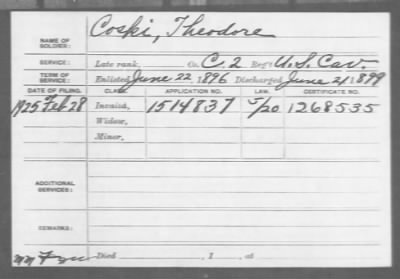 NAME OF SOLDIER: Coski, Theodore
SERVICE: Late rank, Co. C. 2 Reg't U.S. Cav.
TERM OF SERVICE: Enlisted June 22, 1896 Discharged June 21, 1899
DATE OF FILING. CLASS. APPLICATION NO. LAW. CERTIFICATE NO.
1925 Feb 28 Invalid, 1514837 1268535
Widow,
Minor,
ADDITIONAL SERVICES:
REMARKS:
Died , 1 , at